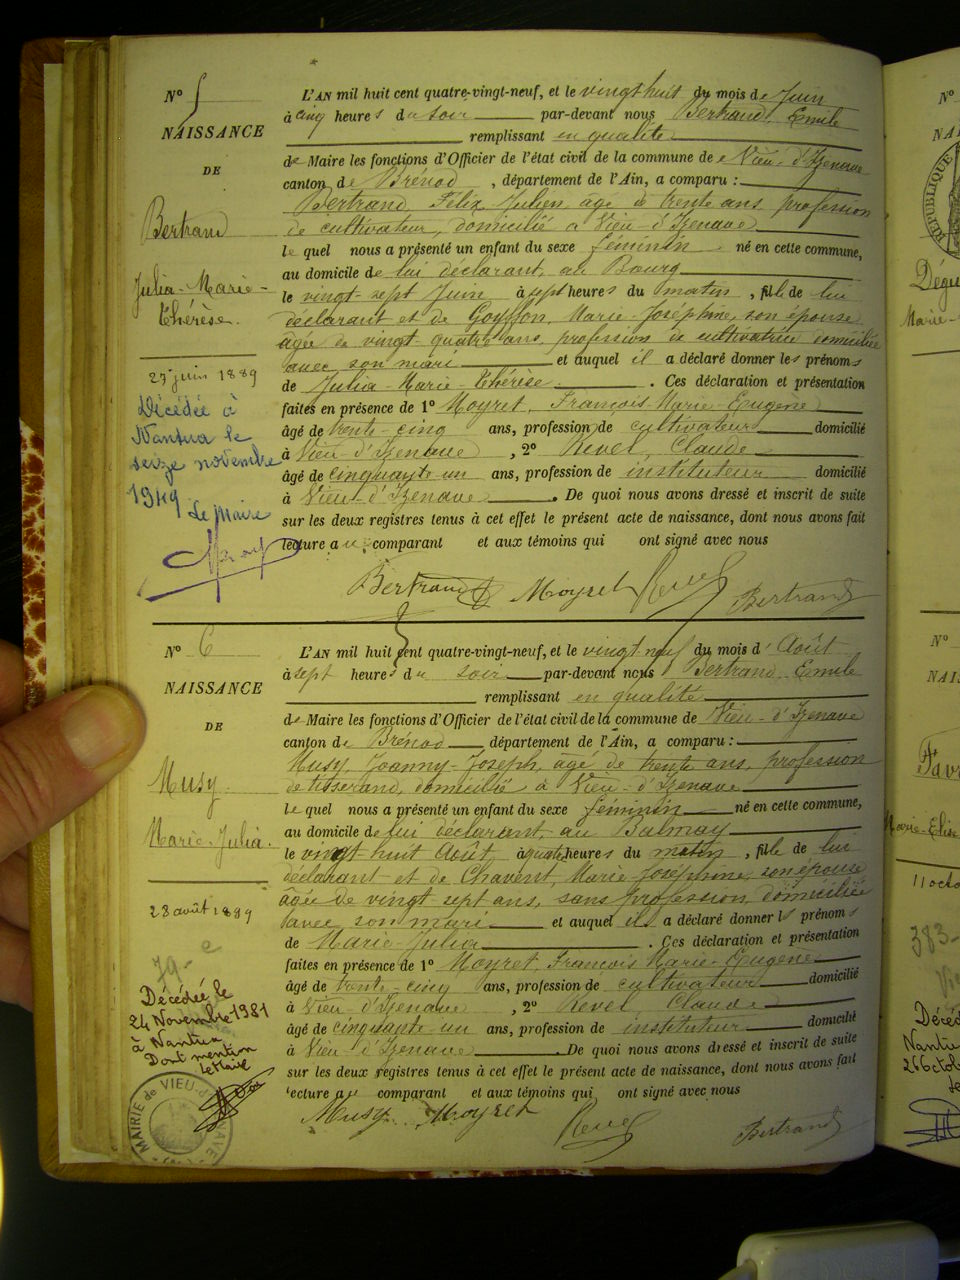 N° 5
NAISSANCE
DE
Bertrand
Julia-Marie-
Thérèse.
27 juin 1889
Décédée à
Nantua le
seize novembre
1949 Le Maire
L'AN mil huit cent quatre-vingt-neuf, et le vingt huit du mois de Juin
à cinq heures du soir par-devant nous Bertrand, Emile
remplissant en qualité
de Maire les fonctions d'Officier de l'état civil de la commune de Vieu-d'Izenave
canton de Brénod, département de l'Ain, a comparu :
Bertrand Félix Julien âgé de trente ans profession
de cultivateur, domicilié à Vieu-d'Izenave
le quel nous a présenté un enfant du sexe féminin né en cette commune,
au domicile de lui déclarant, au Bourg
le vingt-sept Juin à sept heures du matin, fille de lui
déclarant et de Goyffon, Marie-Joséphine, son épouse
âgée de vingt quatre ans, profession de cultivatrice domiciliée
avec son mari et auquel il a déclaré donner les prénoms
de Julia-Marie-Thérèse. Ces déclaration et présentation
faites en présence de 1° Moyret, François-Marie-Eugène
âgé de trente-cinq ans, profession de cultivateur domicilié
à Vieu-d'Izenave, 2° Revel, Claude
âgé de cinquante-un ans, profession de instituteur domicilié
à Vieu-d'Izenave. De quoi nous avons dressé et inscrit de suite
sur les deux registres tenus à cet effet le présent acte de naissance, dont nous avons fait
lecture au comparant et aux témoins qui ont signé avec nous
Bertrand Moyret Revel Bertrand
N° 6
NAISSANCE
DE
Musy
Marie-Julia.
28 août 1889
79- e
Décédée le
24 Novembre 1981
à Nantua
Dont mention
Le Maire
MAIRIE de VIEU-D'IZENAVE
L'AN mil huit cent quatre-vingt-neuf, et le vingt neuf du mois d'Août
à sept heures du soir par-devant nous Bertrand Emile
remplissant en qualité
de Maire les fonctions d'Officier de l'état civil de la commune de Vieu-d'Izenave
canton de Brénod, département de l'Ain, a comparu :
Musy, Joanny-Joseph, âgé de trente ans, profession
de tisserand, domicilié à Vieu-d'Izenave
le quel nous a présenté un enfant du sexe féminin né en cette commune,
au domicile de lui déclarant au Balmay
le vingt-huit Août, à quatre heures du matin, fille de lui
déclarant et de Chavent, Marie-Joséphine, son épouse
âgée de vingt sept ans, sans profession, domiciliée
avec son mari et auquel il a déclaré donner les prénoms
de Marie-Julia. Ces déclaration et présentation
faites en présence de 1° Moyret, François Marie-Eugène
âgé de trente-cinq ans, profession de cultivateur domicilié
à Vieu d'Izenave, 2° Revel Claude
âgé de cinquante un ans, profession de instituteur domicilié
à Vieu-d'Izenave. De quoi nous avons dressé et inscrit de suite
sur les deux registres tenus à cet effet le présent acte de naissance, dont nous avons fait
lecture au comparant et aux témoins qui ont signé avec nous
Musy. Moyret Revel Bertrand
N°
RÉPUBLIQUE
Marie-
N°
Marie-Elise
11 octo
383-
Décéd
Nantu
26 Octob